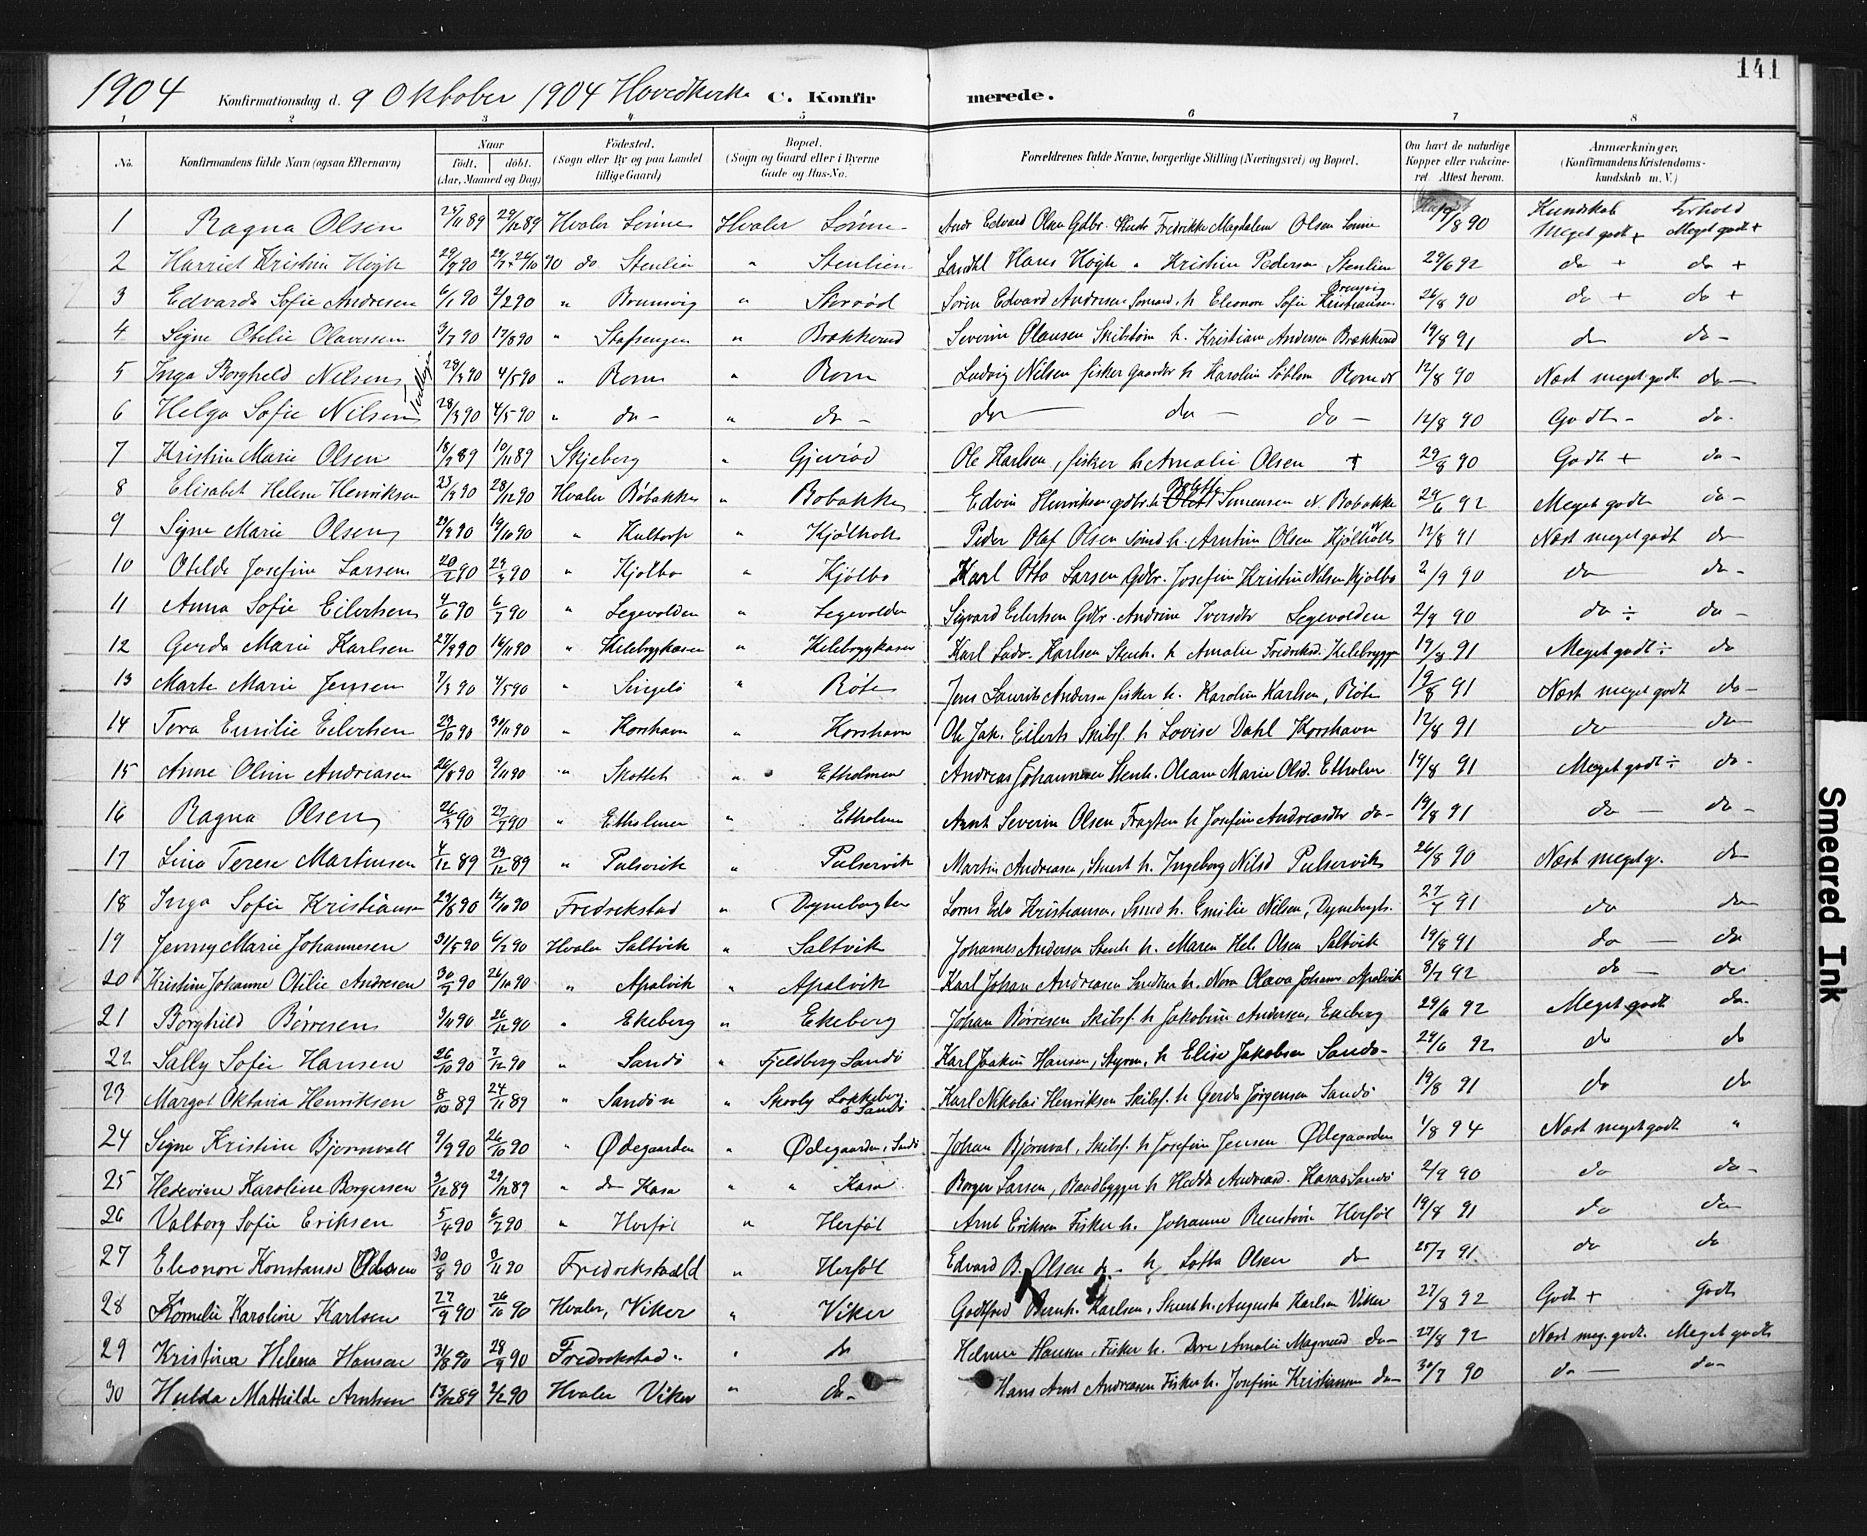 141
1904 Konfirmationsdag d. 9 Oktober 1904 Hovedkirke C. Konfirmerede.
1 2 3 4 5 6 7 8
No. Konfirmandens fulde Navn (ogsaa Efternavn) Naar født, døbt. (Aar, Maaned og Dag) Fødested. (Sogn eller By og paa Landet tillige Gaard) Bopæl. (Sogn og Gaard eller i Byerne Gade og Hus-No. Forældrenes fulde Navne, borgerlige Stilling (Næringsvei) og Bopæl. Om havt de naturlige Kopper eller vaccineret. Attest herom. Anmærkninger. (Konfirmandens Kristendomskundskab m. V.)
Kundskab Forhold
1 Ragna Olsen 29/12 89 Hvaler Hvaler Edvard Olsen Gdbr. Fredrikke Magdalene Olsen /8 90 Meget godt + Meget godt +
2 Harriet Kristine Høgh 29/7 90 do Stenlien " Stenlien Hans Høgh " Kristine Pedersen Stenlien 29/6 92 do + do +
3 Edvarda Sofie Andresen 6/1 90 2/2 90 " Brunsvig " Skrød Søren Edvard Andresen h. Eleonore Sofie Kristiansen 26/8 90 do + do +
4 Signe Otilie Olavesen 3/7 90 17/8 90 " Stafsengen " Brækkerud Severin Olausen h. Kristiane Andersen Brækkerud 19/8 91 do do -
5 Inga Borghild Nilsen 28/3 90 4/5 90 " Rom " Rom Ludvig Nilsen fisker h Karoline Sjøblom Rom 12/8 90 Næst meget godt do -
6 Helga Sofie Nilsen Tvilling 28/3 90 4/5 90 " do - " do - do - do - do - 12/8 90 Godt - do -
7 Kristine Marie Olsen 18/7 89 10/11 89 Skjeberg " Gjevrød Ole Karlsen, fisker h Amalie Olsen + 29/8 90 Godt + do -
8 Elisabet Helene Henriksen 23/9 90 28/12 90 Hvaler Bobakke " Bobakke Edvin Henriksen gdbr. h Simensen Bobakke 29/6 92 Meget godt do -
9 Signe Marie Olsen 29/8 90 19/10 90 " Kultorp " Kjølholt Peder Olaf Olsen h. Arntine Olsen Kjølholt 12/8 91 Næst meget godt do
10 Otelde Josefine Larsen 20/2 90 27/3 90 " Kjølbo " Kjølbo Karl Otto Larsen Gdbr. Josefine Kristine Nilsen Kjølbo 2/9 90 do do -
11 Anna Sofie Eilertsen 4/6 90 6/7 90 " Legevolden " Legevolden Sigvard Eilertsen Gdbr. Andrine Iversdtr Legevolden 2/9 90 do ÷ do -
12 Gerda Marie Karlsen 27/9 90 16/11 90 " Kilebryggasen " Kilebryggasen Karl Ludv. Karlsen Stenh. h Amalie Fredriksd. Kilebrygga 19/8 91 Meget godt ÷ do
13 Marte Marie Jensen 7/3 90 4/5 90 " Singelø " Røte Jens Laurits Andersen fisker h. Karoline Karlsen, Røte 19/8 91 Næst meget godt do -
14 Tora Emilie Eilertsen 29/10 90 30/11 90 " Korshavn " Korshavn Ole Jak. Eilerts Skibsf. h Lovise Dahl Korshavn 12/8 91 do do
15 Anne Oline Andreasen 26/8 90 9/11 90 " Skottet " Etholmen Andreas Johannesen Stenh. Oleane Marie Olsd. Etholm 19/8 91 Meget godt ÷ do -
16 Ragna Olsen 26/5 90 27/7 90 " Etholmen " Etholmen Arnt Severin Olsen h Josefine Andreasdtr do - 19/8 91 do - do -
17 Lina Terese Martinsen 4/12 89 29/12 89 " Pulservik " Pulservik Martin Andreasen, Stenh h. Ingeborg Nilsd Pulservik 26/8 90 Næst meget g. do
18 Inga Sofie Kristiansen 29/8 90 12/10 90 Fredrikstad " Dyneborgten Edv Kristiansen, Smed h. Emilie Nilsen, Dynebergt. 27/7 91 do do
19 Jenny Marie Johannesen 31/5 90 6/7 90 Hvaler Saltvik " Saltvik Johannes Andersen Stenh h. Maren Hel. Olsen Saltvik 19/8 91 do - do
20 Kristine Johanne Otilie Andresen 30/8 90 26/10 90 " Apalvik " Apalvik Karl Johan Andreasen h. Nora Olava Johans Apalvik 8/7 92 do - do
21 Borghild Børresen 3/11 90 26/12 90 " Ekeberg " Ekeberg Johan Børresen Skibsf. h Jakobine Andersen, Ekeberg 29/6 92 Meget godt do
22 Sally Sofie Hansen 26/10 90 7/12 90 " Sandø " Fjeldberg Sandø Karl Joakim Hansen, Styrm. h Elise Jakobsen Sandø - 29/6 92 do do
23 Margot Oktavia Henriksen 8/10 89 24/11 89 " Sandøn " Skovly Løkkeberg Sandø Karl Nikolai Henriksen Skibsf. h Gerda Jørgensen Sandø 19/8 91 do do
24 Signe Kristine Bjørnvall 9/9 90 26/10 90 " Ødegaarden " Ødegaarden, Sandø Johan Bjørnval, Skibsf. h Josefine Jensen Ødegaarden 1/8 94 Næst meget godt "
25 Hedevine Karoline Borgersen 3/12 89 29/12 89 " do Kasa " " Kasa Borger Larsen, Baadbygger h Hedda Andreasd. Kasa Sandø 2/9 90 do do -
26 Valborg Sofie Eriksen 5/4 90 6/7 90 " Herføl " Herføl Arnt Eriksen Fisker h. Johanne Herføl 19/8 91 do do
27 Eleonore Konstanse Olsen 30/8 90 9/11 90 Fredrikstad " Herføl Edvard B. Olsen h Lotta Olsen do 25/7 91 do do
28 Kornelie Karoline Karlsen 27/9 90 26/10 90 Hvaler, Viker " Viker Godtfred Bernh. Karlsen, h. Augusta Karlsen Viker 27/8 92 Godt + Godt
29 Kristina Helena Hansen 31/8 90 28/9 90 Fredrikstad " do Helmer Hansen, Fisker h. Amalie do - 27/8 92 Næst meg. godt. Meget godt
30 Hulda Mathilde Arntsen 13/12 89 2/2 90 Hvaler Viker " do - Hans Arnt Andreasen Fisker h. Josefine Kristiansen do - 30/7 90 do - do -
Smeared Ink